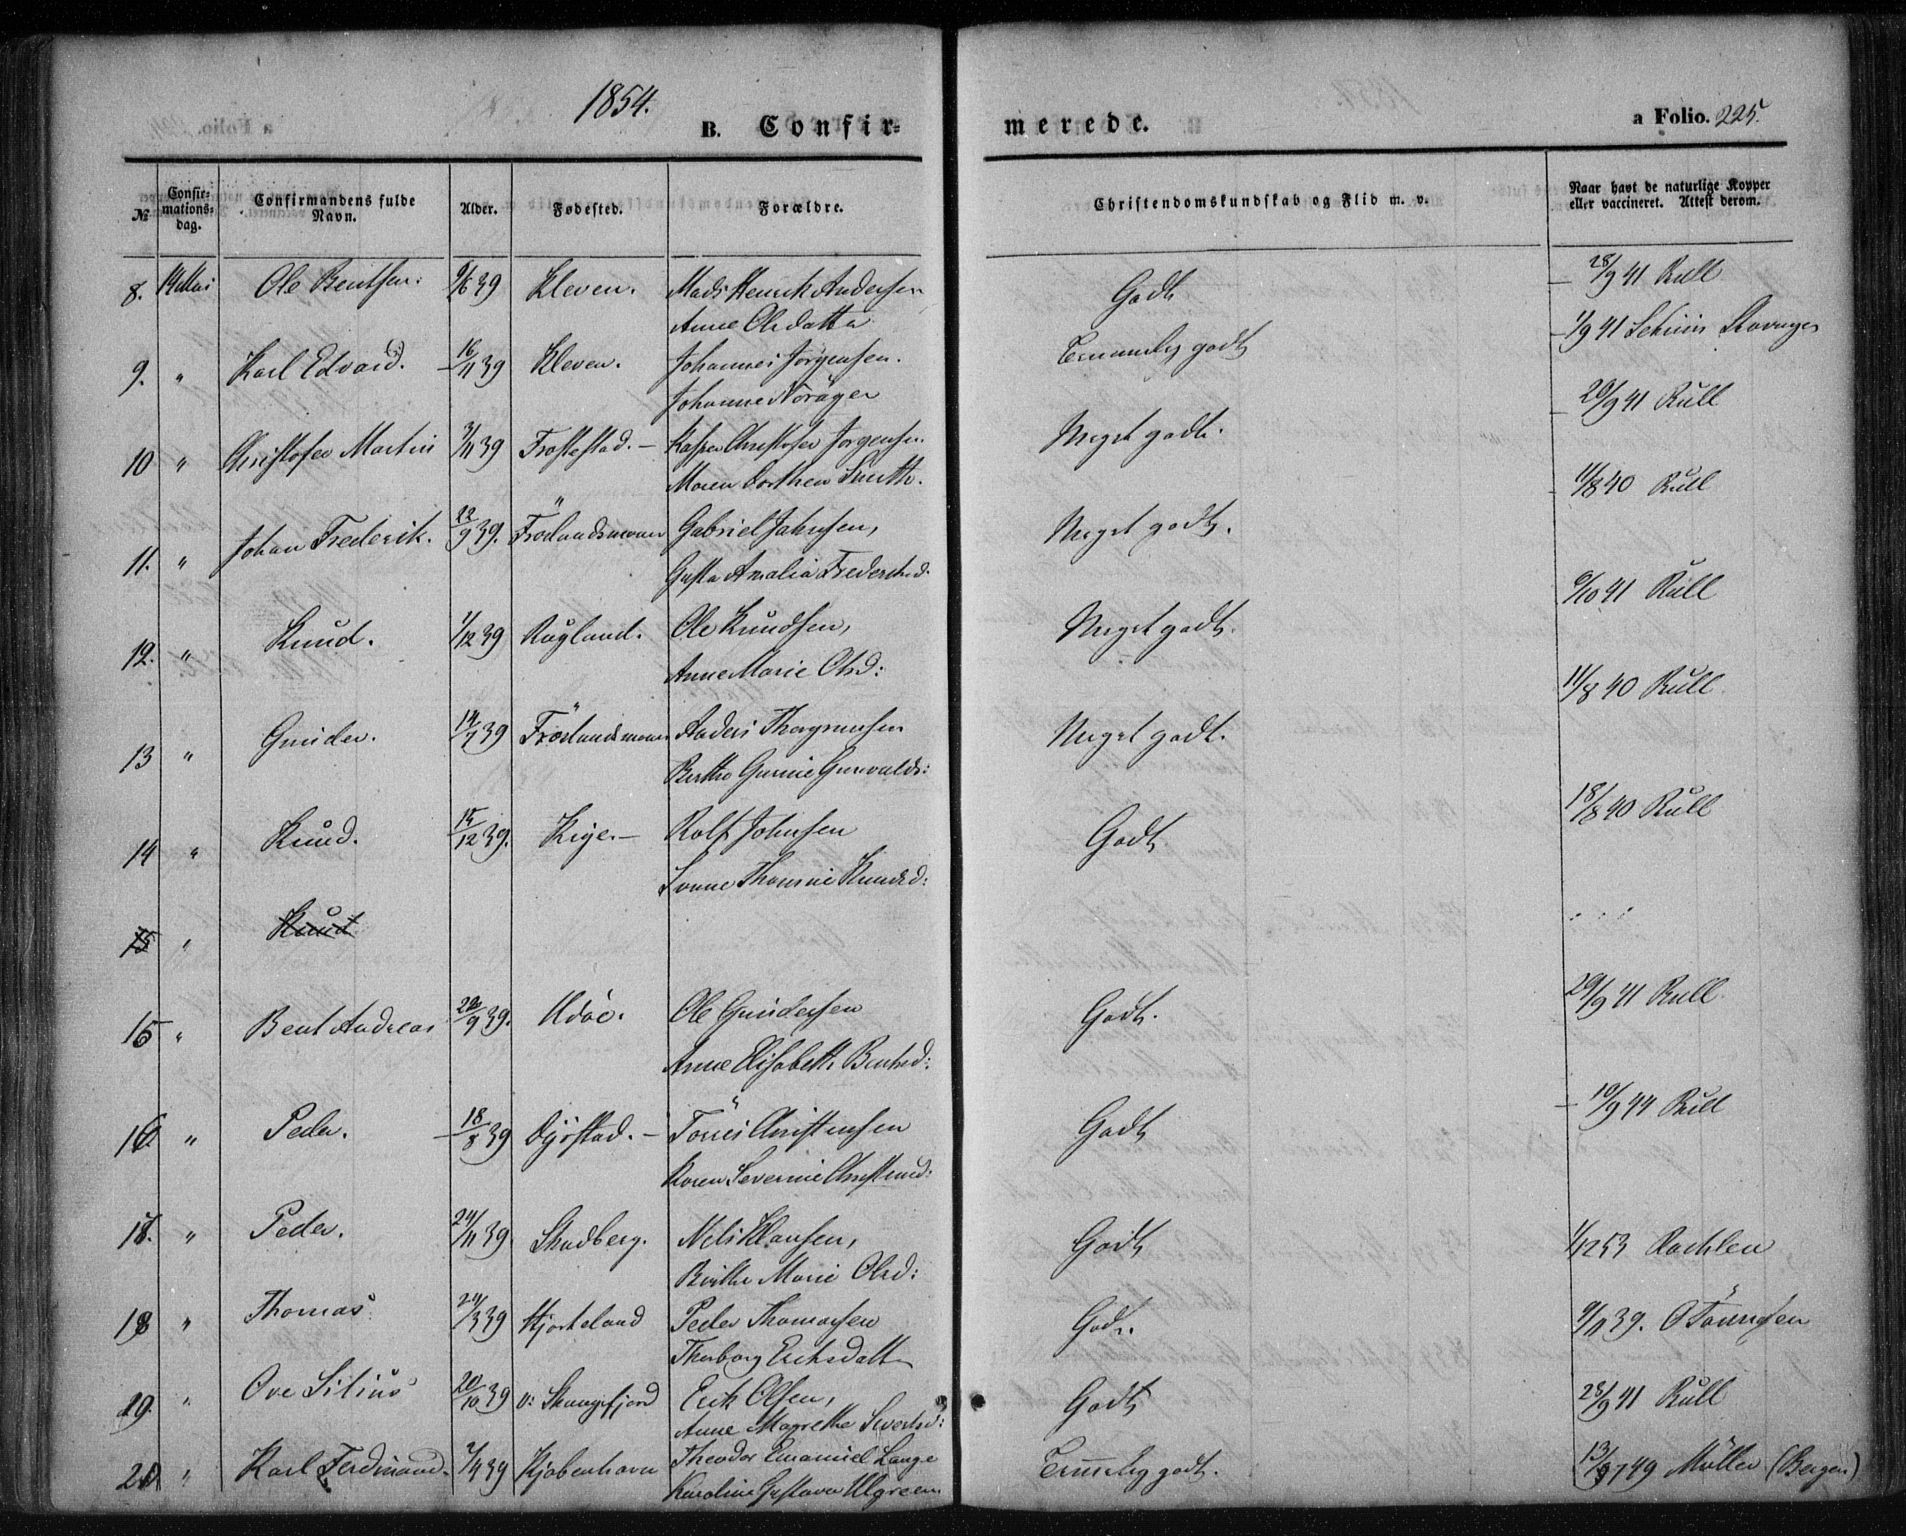 1854.
B. Confir-
merede.
a Folio. 225.
№
Confir-
mations-
dag.
Confirmandens fulde
Navn.
Alder.
Fødested.
Forældre.
Christendomskundskab og Flid m. v.
Naar havt de naturlige Kopper
eller vaccineret. Attest derom.
8. Mai Ole Bentsen. 39 Kleven. Mads Henrik Andersen Godt 28/9 41 Rull
Anne Olsdatter
9. " Karl Edvard. 16/11 39 Kleven. Johannes Jørgensen. Temmelig godt 1/9 41 Stavanger
Johanne Noräger
10 " Christofer Martin 3/11 39 Frostestad.- Kasper Christofer Jørgensen Meget godt. 20/9 41 Rull
Maren Dorthea Smith.
11. " Johan Frederik. 22/9 39. Frölandsmoen Gabriel Jahnsen, Meget godt. 11/8 40 Rull
Gusta Amalia Frederiksd.
12. " Knud. 1/12 39 Rugland. Ole Knudsen, Meget godt. 6/10 41 Rull
Anne Marie Olsd:
13 " Gunder. 14/7 39 Frölandsmoen Anders Thorgrimsen Meget godt. 11/8 40 Rull
Berthe Gurine Gunvaldsd:
14 " Knud. 15/12 39. Kige.- Rolf Johnsen Godt 18/8 40 Rull
Thomine Knudsd:
15 " Knud
15 " Bent Andreas 22/9 39. Udøe. Ole Gundersen Godt. 29/9 41 Rull
Anne Elisabeth Bentsd:
16 " Peder. 18/8 39 Öjestad.- Törres Christensen Godt 10/9 44 Rull
Karen Severine Christensd:
17. " Peder. 24/11 39 Skadberg. Nels Klausen, Godt 1/12 53
Birthe Marie Olsd:
18 " Thomas 24/3 39 Hjorteland Peder Thomasen Godt. 9/11 39. O Tönnesen
Thorborg Eriksdatter
19. " Ove Silius 20/10 39 v: Skougsfjord Erik Olsen, Godt 28/9 41 Rull
Anne Magrethe Sivertsd:
20 " Karl Ferdinand. 7/4 39 Kjøbenhavn Theodor Emanuel Lange Temelig godt. 13/9 49 Müller (Bergen)
Karoline Gustava Ulgreen